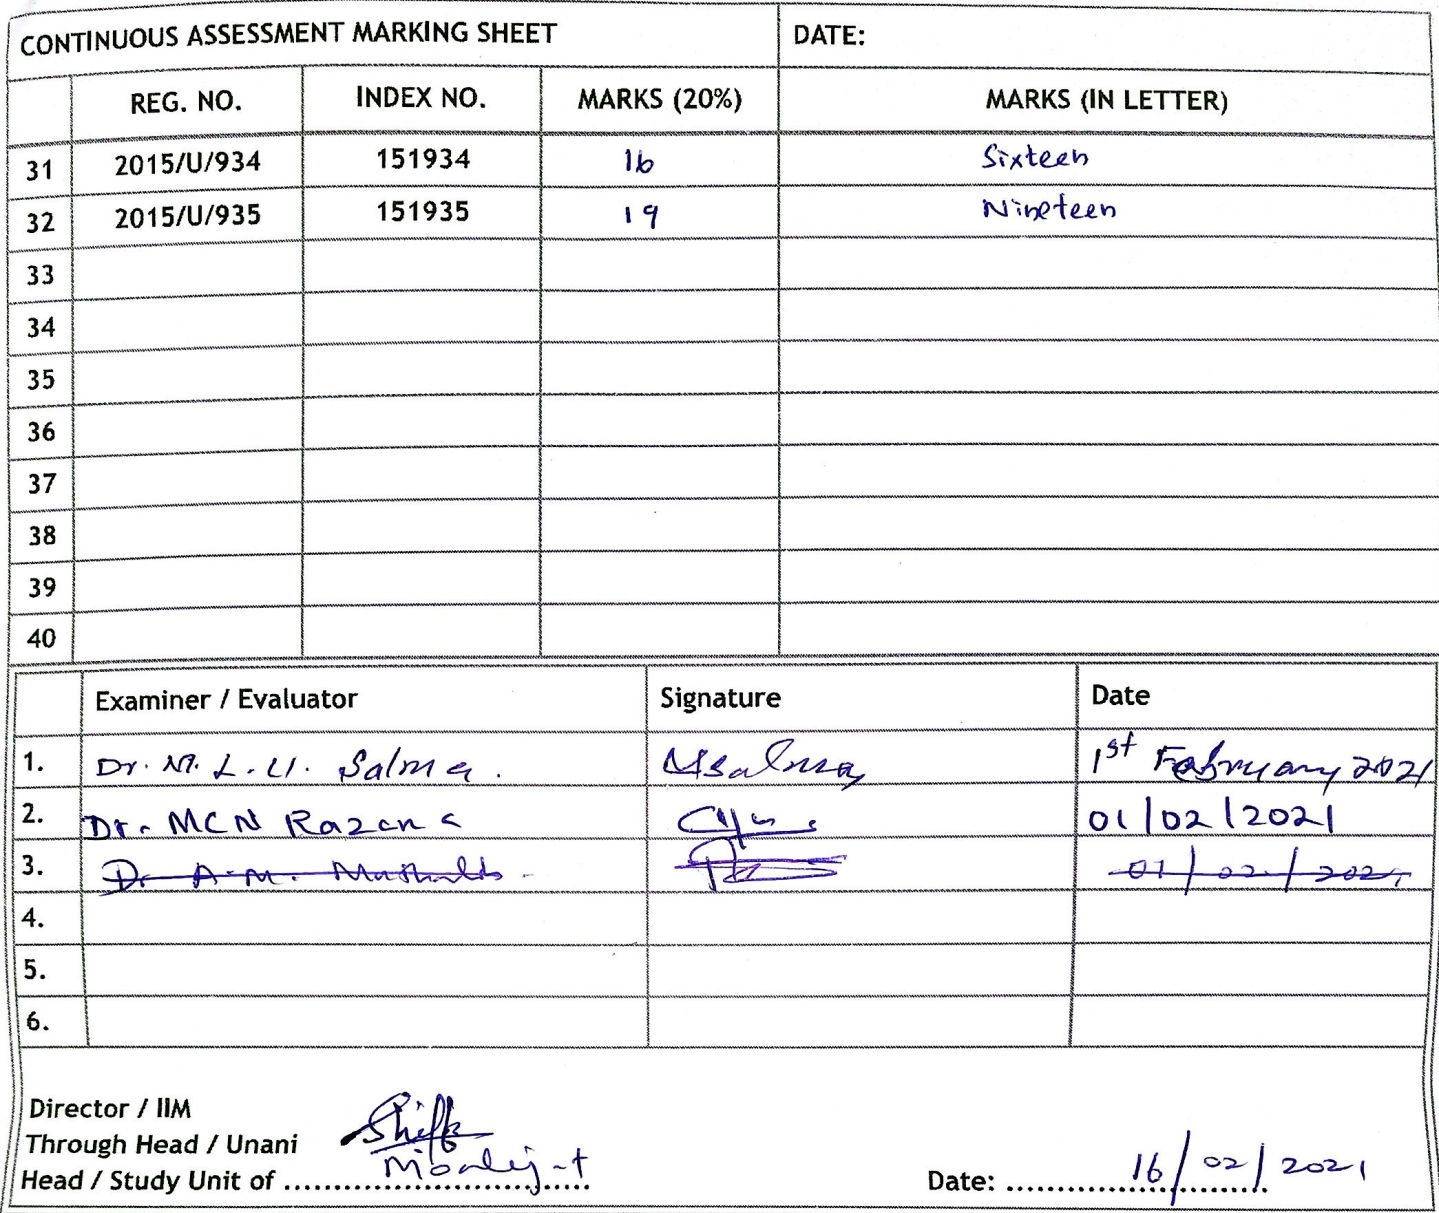 CONTINUOUS ASSESSMENT MARKING SHEET DATE:
REG. NO. INDEX NO. MARKS (20%) MARKS (IN LETTER)
31 2015/U/934 151934 16 Sixteen
32 2015/U/935 151935 19 Nineteen
33
34
35
36
37
38
39
40
Examiner / Evaluator Signature Date
1. Dr. M. L. U. Salma. MSalma 1st February 2021
2. Dr. MCN Razana 01/02/2021
3. Dr A.M. 01/02/2021
4.
5.
6.
Director / IIM
Through Head / Unani
Head / Study Unit of ..............................
Date: ......................... 16/02/2021